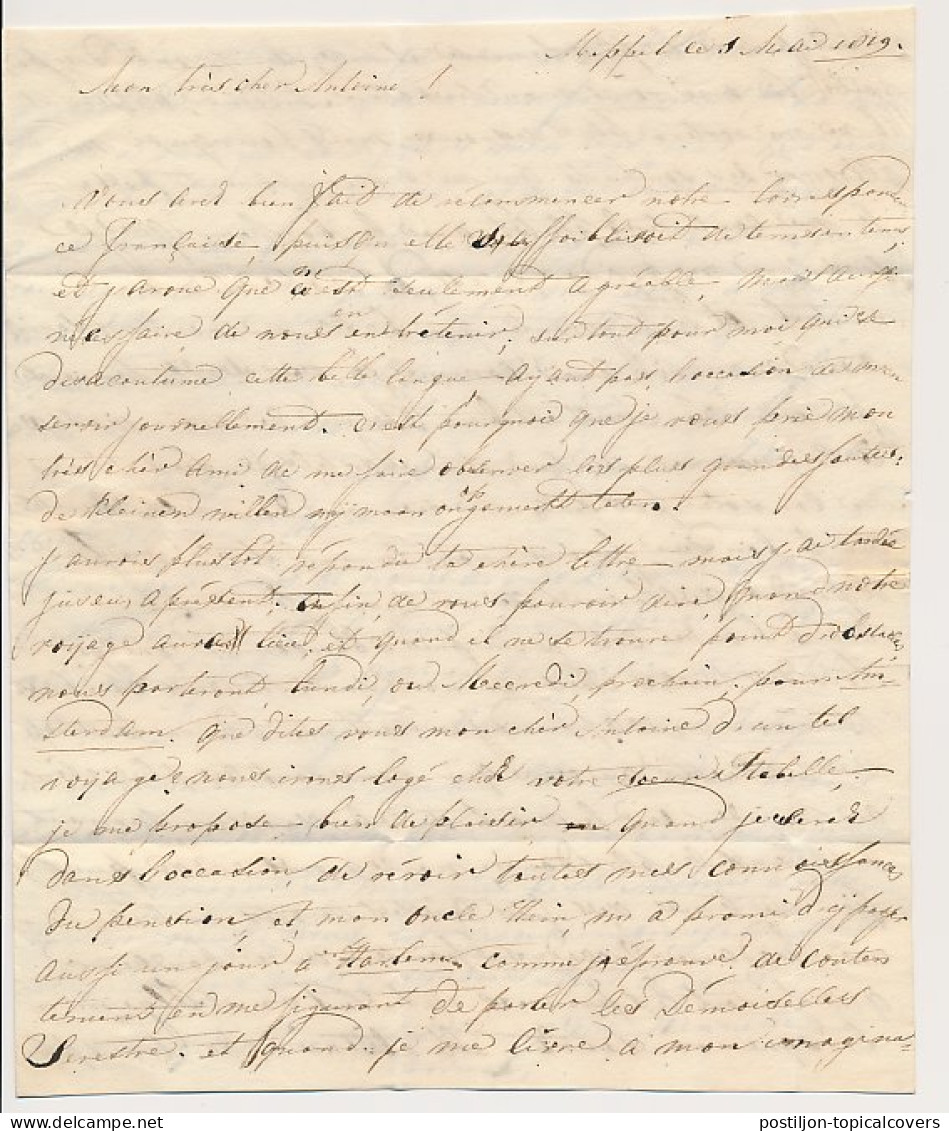 Meppel ce 1 Mai 1819.
Mon très cher Antoine !
Vous avez bien fait de récommencer notre Correspondan
ce française, puisqu'elle s'affoiblissoit de tems en tems,
et j'avoue que c'est seulement agréable, mais aussi
nécessaire de nous en entretenir, surtout pour moi qui se
desacoutume cette belle langue ayant pas l'occasion de m'en
servir journellement. c'est pourquoi que je vous prie mon
très chèr Ami de me faire observer les plus grandes fautes:
de kleinen willen wij maar ongemerkt laten.
J'aurois plustot répondu ta chère lettre mais j'ai tardée
jusqu'a présent, afin de vous pouvoir dire, quand notre
voyage aura lieu, et quand il ne se trouve point d'obstacles
nous parteront, Lundi, ou Mecredi, prochain, pour Am-
sterdam. Que dites vous mon chèr Antoine d'un tel
voyage, nous irons logé chez votre soeur
je me propose bien de plaisir quand je serai
dans l'occasion, de révoir toutes mes connoissances
du pension, et mon oncle m'a promi d'y passer
aussi un jour a Harlem, comme j'éprouve de conten
tement en me figurant de parler les Démoiselles
et quand je me livre a mon imagina-
postiljon-topicalcovers